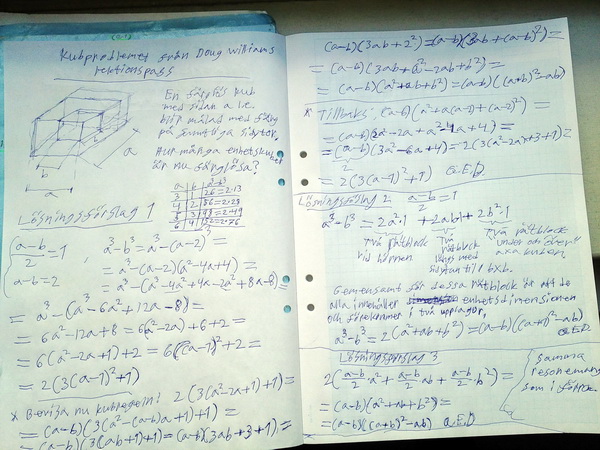 Kubproblemet från Doug Williams
lektionspass
En färglös kub
med sidan a l.e.
blir målad med färg
på samtliga sidytor.
Hur många enhetskuber
är nu färglösa?
b
a
a b a³-b³
3 1 26=2·13
4 2 56=2·28
5 3 98=2·49
6 4 152=2·76
Lösningsförslag 1
(a-b)/2=1
a-b=2
a³-b³=a³-(a-2)³=
=a³-(a-2)(a²-4a+4)=
=a³-(a³-4a²+4a-2a²+8a-8)=
=a³-(a³-6a²+12a-8)=
=6a²-12a+8=6(a²-2a)+6+2=
=6(a²-2a+1)+2=6(a-1)²+2=
=2(3(a-1)²+1)
* Bevisa nu kubregeln! 2(3(a²-2a+1)+1)=
=(a-b)(3(a²-(a-b)a+1)+1)=
=(a-b)(3(ab+1)+1)=(a-b)(3ab+3+1)=
(a-b)(3ab+2²)=(a-b)(3ab+(a-b)²)=
=(a-b)(3ab+a²-2ab+b²)=
=(a-b)(a²+ab+b²)=(a-b)((a+b)²-ab)
* Tillbaks: (a-b)(a²+a(a-2)+(a-2)²)=
=(a-b)(2a²-2a+a²-4a+4)=
=(a-b)(3a²-6a+4)=2(3(a²-2a)+3+1)=
2
=2(3(a-1)²+1) Q.E.D.
Lösningsförslag 2 (a-b)/2=1
a³-b³=2a²·1+2ab·1+2b²·1
Två rätblock
vid
Två
rätblock
längs med
sidytan till
Två rätblock
under och över
b×b.
Gemensamt för dessa rätblock är att de
alla innehåller enhetsdimensionen
och förekommer i två upplagor,
a³-b³=2(a²+ab+b²)=(a-b)((a+b)²-ab)
Q.E.D.
Lösningsförslag 3
2((a-b)/2·a²+(a-b)/2·ab+(a-b)/2·b²)=
=(a-b)(a²+ab+b²)=
=(a-b)((a+b)²-ab) Q.E.D
samma
resonemang
som i